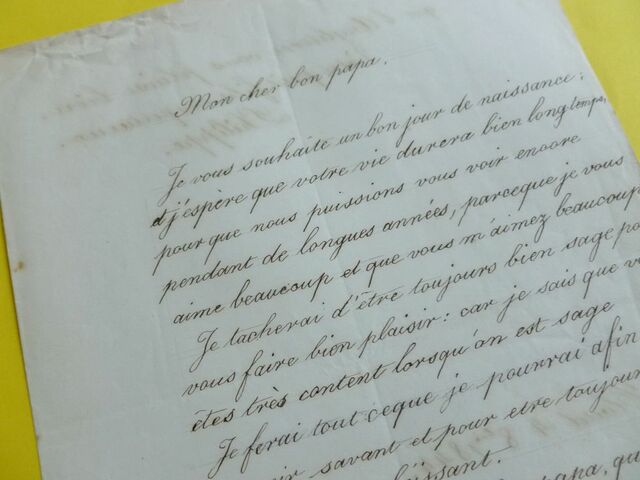 Mon cher bon papa.
Je vous souhaite un bon jour de naissance;
et j'espère que votre vie durera bien longtemps,
pour que nous puissions vous voir encore
pendant de longues années, parceque je vous
aime beaucoup et que vous m'aimez beaucoup
Je tacherai d'être toujours bien sage
vous faire bien plaisir: car je sais que
êtes très content lorsqu'on est sage
Je ferai tout ceque je pourrai afin
savant et pour etre toujour